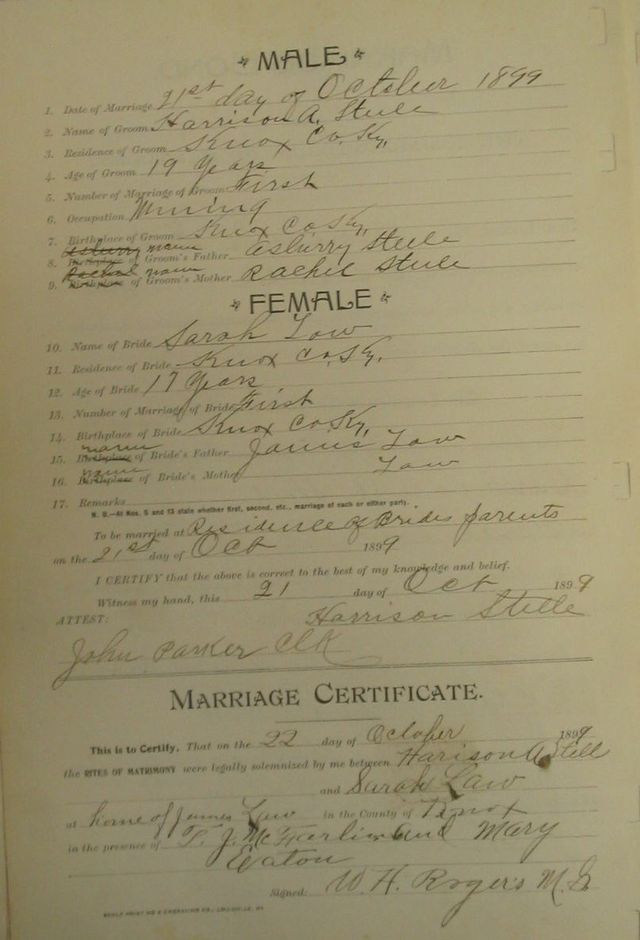 MALE
1. Date of Marriage 21st day of October 1899
2. Name of Groom Harrison A. Steele
3. Residence of Groom Knox Co. Ky.
4. Age of Groom 19 Years
5. Number of Marriage of Groom First
6. Occupation Mining
7. Birthplace of Groom Knox Co. Ky,
8. Birthplace name of Groom's Father Asburry Steele
9. Birthplace name of Groom's Mother Rachel Steele
FEMALE
10. Name of Bride Sarah Law
11. Residence of Bride Knox Co. Ky.
12. Age of Bride 17 Years
13. Number of Marriage of Bride First
14. Birthplace of Bride Knox Co Ky,
15. Birthplace name of Bride's Father James Law
16. Birthplace name of Bride's Mother Law
17. Remarks
N. B.—At Nos. 5 and 13 state whether first, second, etc., marriage of each or either party.
To be married at Residence of Brides parents
on the 21st day of Oct 1899
I CERTIFY that the above is correct to the best of my knowledge and belief.
Witness my hand, this 21 day of Oct 1899
ATTEST: Harrison Steele
John Parker Clk
MARRIAGE CERTIFICATE.
This is to Certify, That on the 22 day of October 1899
the RITES OF MATRIMONY were legally solemnized by me between Harison A Stell
and Sarah Law
at home of James Law in the County of Knox
in the presence of T. J. McFarlin and Mary
Eaton
Signed: W. H. Rogers M. G.